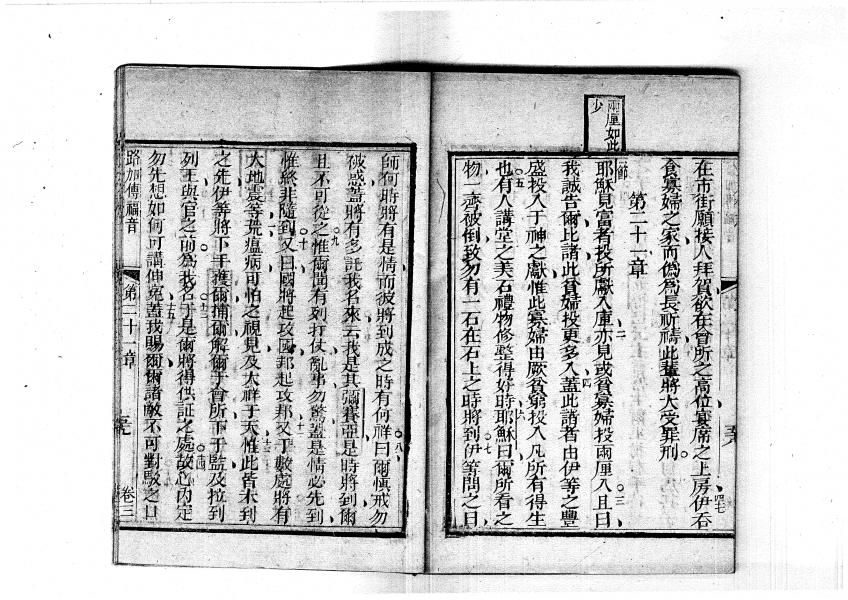 在市街願接人拜賀欲在會所之高位宴席之上房伊吞
四七
食寡婦之家而偽為長祈禱此輩將大受罪刑
第二十一章
耶穌見富者投所獻入庫亦見或貧寡婦投兩厘入且曰
二
三
我誠告爾此諸此貧婦投更多入蓋此諸者由伊等之豐
四
盛投入于神之獻惟此寡婦由厥貧窮投入凡所有得生
五
也有人講堂之美石禮物修整得好時耶穌曰爾所看之
六
物一濟被倒致勿有一石在石上之時將到伊等問之曰
七
兩厘如此
少
五八
師何時將有是情而彼將到成之時有何祥曰爾慎戒勿
八
被感蓋將有多託我名來云我是其彌賽亞是時將到爾
且不可從之惟爾聞有列打仗亂事勿驚蓋是情必先到
九
惟終非隨到又曰國將起攻國邦起攻邦又于數處將有
十
十一
大地震等荒瘟病可怕之視見及大祥于天惟此皆未到
之先伊等將下手獲爾捕爾解爾于會所下于監及拉到
十二
列王與官之前為我名于是爾將得供証之處故心內定
十三
十四
勿先想如何可講伸冤蓋我賜爾爾諸敵不可對駁之口
十五
路加傳福音
第二十一章
五九
卷三